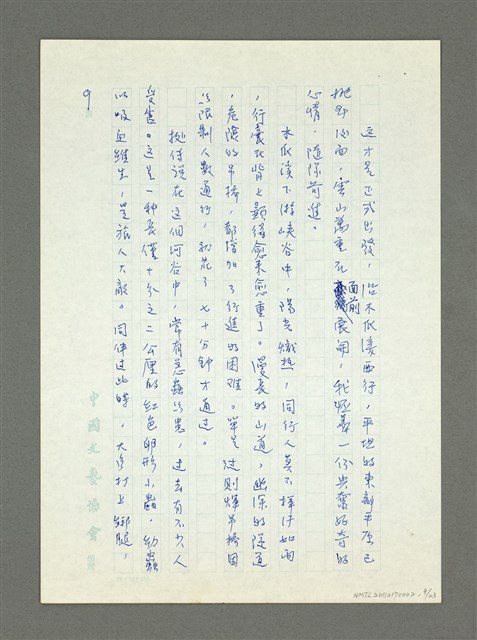 這才是正式出發，沿木瓜溪西行，平坦的東部平原已
拋卸後面，雲山萬重在面前展開，我懷着一份興奮好奇的
心情，隨隊前進。
木瓜溪下游峽谷中，陽光熾熱，同行人莫不揮汗如雨
，行囊在背上顯得愈來愈重了。漫長的山道，幽深的隧道
，危險的吊橋，都增加了行進的困難。單是過則輝吊橋因
以限制人數通行，就花了七十分鐘才通過。
據傳說在這個河谷中，常有恙蟲為患，過去有不少人
受害。這是一種長僅十分之二公厘的紅色卵形小蟲，幼蟲
以吸血維生，是旅人大敵。同伴過此時，大多打上綁腿，
9
中國文藝協會
NMTL20110170002-9/23